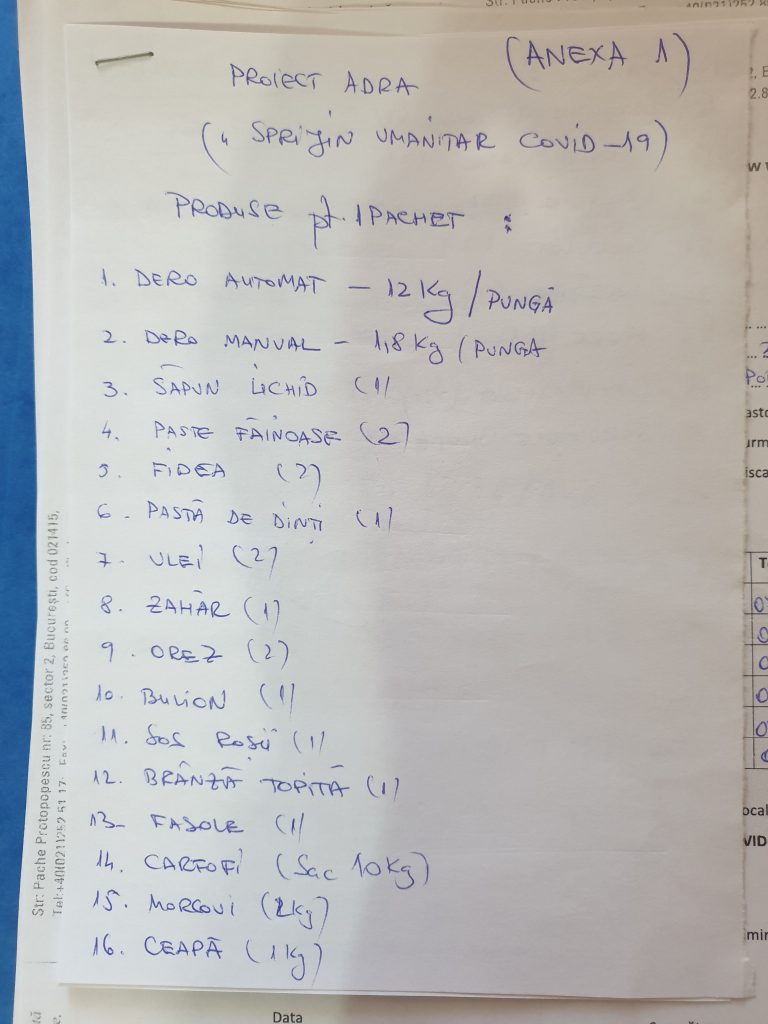 (ANEXA 1)
PROIECT ADRA
(„ SPRIJIN UMANITAR COVID-19)
PRODUSE pt. 1 PACHET :
1. DERO AUTOMAT - 12 Kg / PUNGĂ
2. DERO MANUAL - 1,8 Kg / PUNGA
3. SĂPUN LICHID (1)
4. PASTE FĂINOASE (2)
5. FIDEA (2)
6. PASTĂ DE DINȚI (1)
7. ULEI (2)
8. ZAHĂR (1)
9. OREZ (2)
10. BULION (1)
11. SOS ROȘII (1)
12. BRÂNZĂ TOPITĂ (1)
13- FASOLE (1)
14. CARTOFI (Sac 10 Kg)
15. MORCOVI (2kg)
16. CEAPĂ (1 Kg)
Str. Pache Protopopescu nr. 85, sector 2, București, cod 021415,
Tel:+40(021)252 51 17
Data